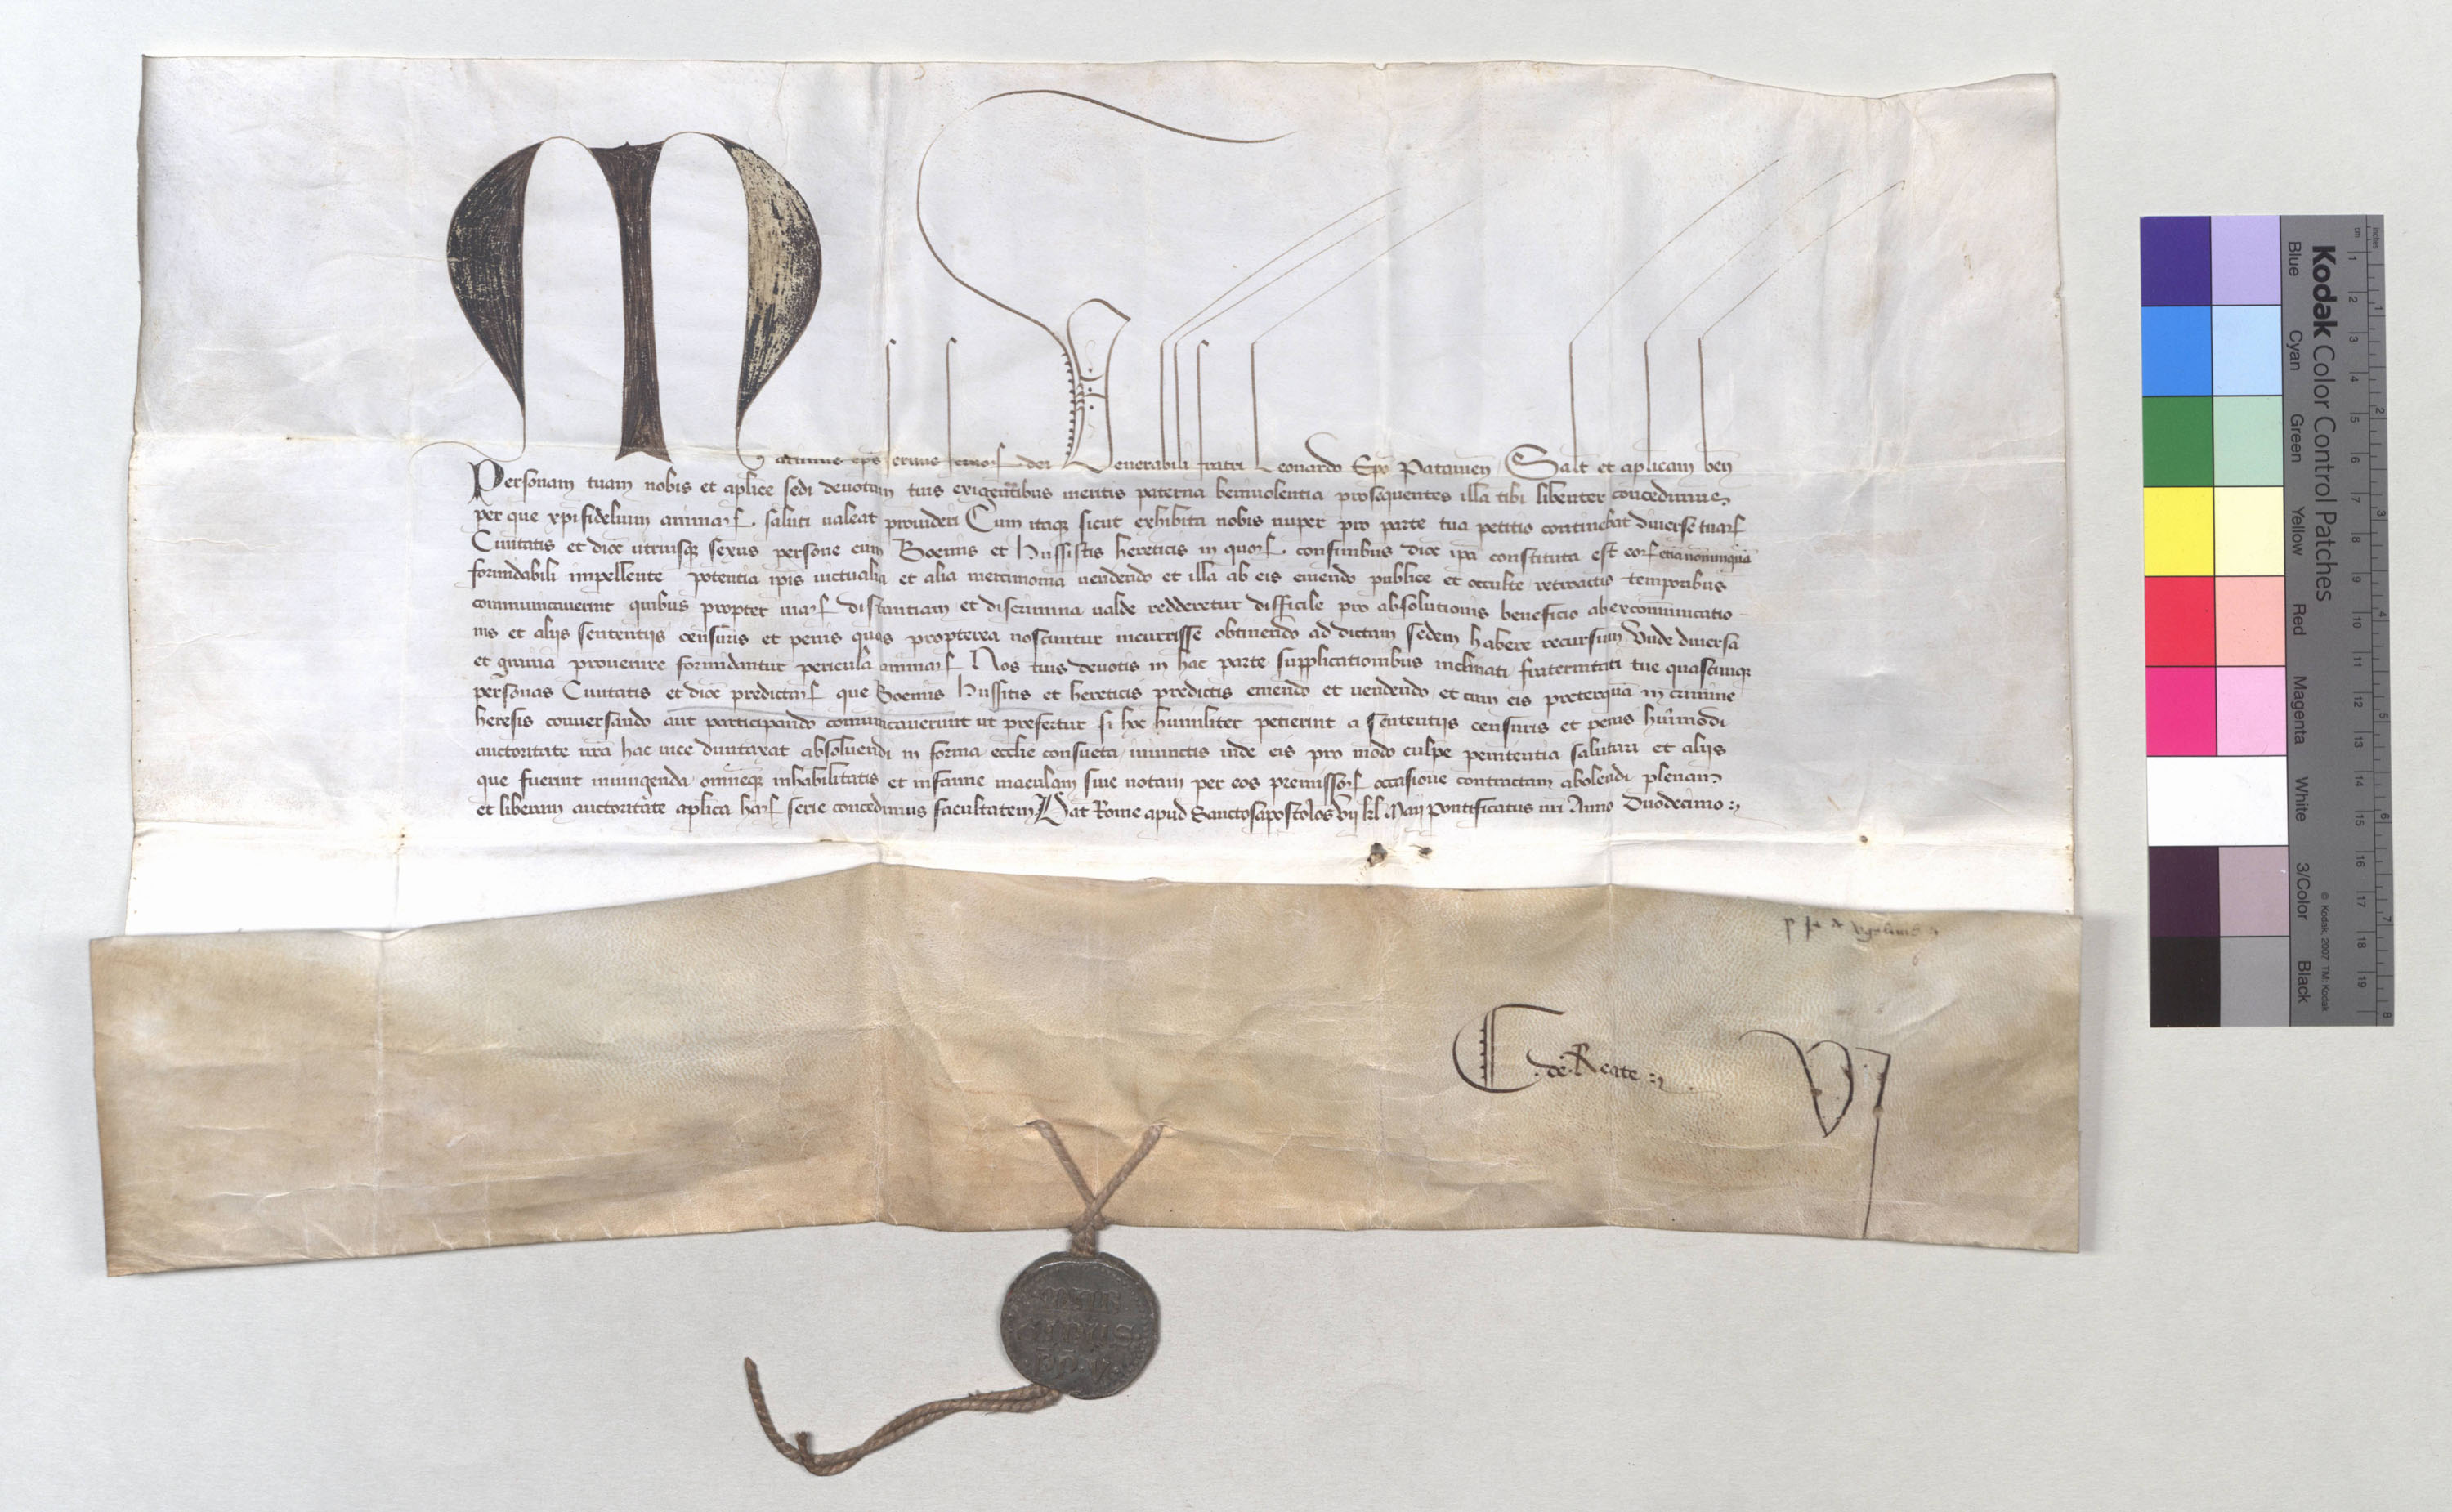 Martinus eps servus servoꝝ dei Venerabili fratri Leonardo Epō Patavien̄ Salt̄ et aplicam ben̄
Personam tuam nobis et aplice sedi devotam tuis exigentibus meritis paterna benivolentia prosequentes illa tibi libenter concedimus
per que xp̄ifidelium animaꝝ saluti valeat provideri Cum itaqꝫ sicut exhibita nobis nuper pro parte tua petitio continebat diverse tuaꝝ
Civitatis et dioc̄ utriusqꝫ sexus persone cum Boemis et Hussistis hereticis in quoꝝ confinibus dioc̄ ip̄a constituta est eoꝝ etiā nonnunquā
formidabili impellente potentia ip̄is victualia et alia mercimonia vendendo et illa ab eis emendo publice et occulte retroactis temporibus
communicaverint quibus propter viaꝝ distantiam et discrimina valde redderetur difficile pro absolutionis beneficio ab excomunicatio-
nis et aliis sententiis censuris et penis quas propterea noscuntur incurrisse obtinendo ad dictam sedem habere recursum Unde diversa
et gravia provenire formidantur pericula animaꝝ Nos tuis devotis in hac parte supplicationibus inclinati fraternitati tue quascunqꝫ
personas Civitatis et dioc̄ predictaꝝ que Boemis Hussitis et hereticis predictis emendo et vendendo et cum eis preterquā in crimine
heresis conversando aut participando comunicaverunt ut prefertur si hoc humiliter petierint a sententiis censuris et penis hmōi
auctoritate nr̄a hac vice duntaxat absolvendi in forma ecclie consueta iniunctis inde eis pro modo culpe penitentia salutari et aliis
que fuerint iniungenda omnemqꝫ inhabilitatis et infamie maculam sive notam per eos premissoꝝ occasione contractam abolendi plenam
et liberam auctoritate aplica haꝝ serie concedimus facultatem Dat Rome apud Sanctosapostolos vij kl Maij Pontificatus nr̄i Anno Duodecimo
C. de Reate
MAR
TINUS
PP V
Kodak Color Control Patches
Blue Cyan Green Yellow Red Magenta White 3/Color Black
© Kodak, 2007 TM: Kodak
cm 1 2 3 4 5 6 7 8 9 10 11 12 13 14 15 16 17 18 19
inches 1 2 3 4 5 6 7 8